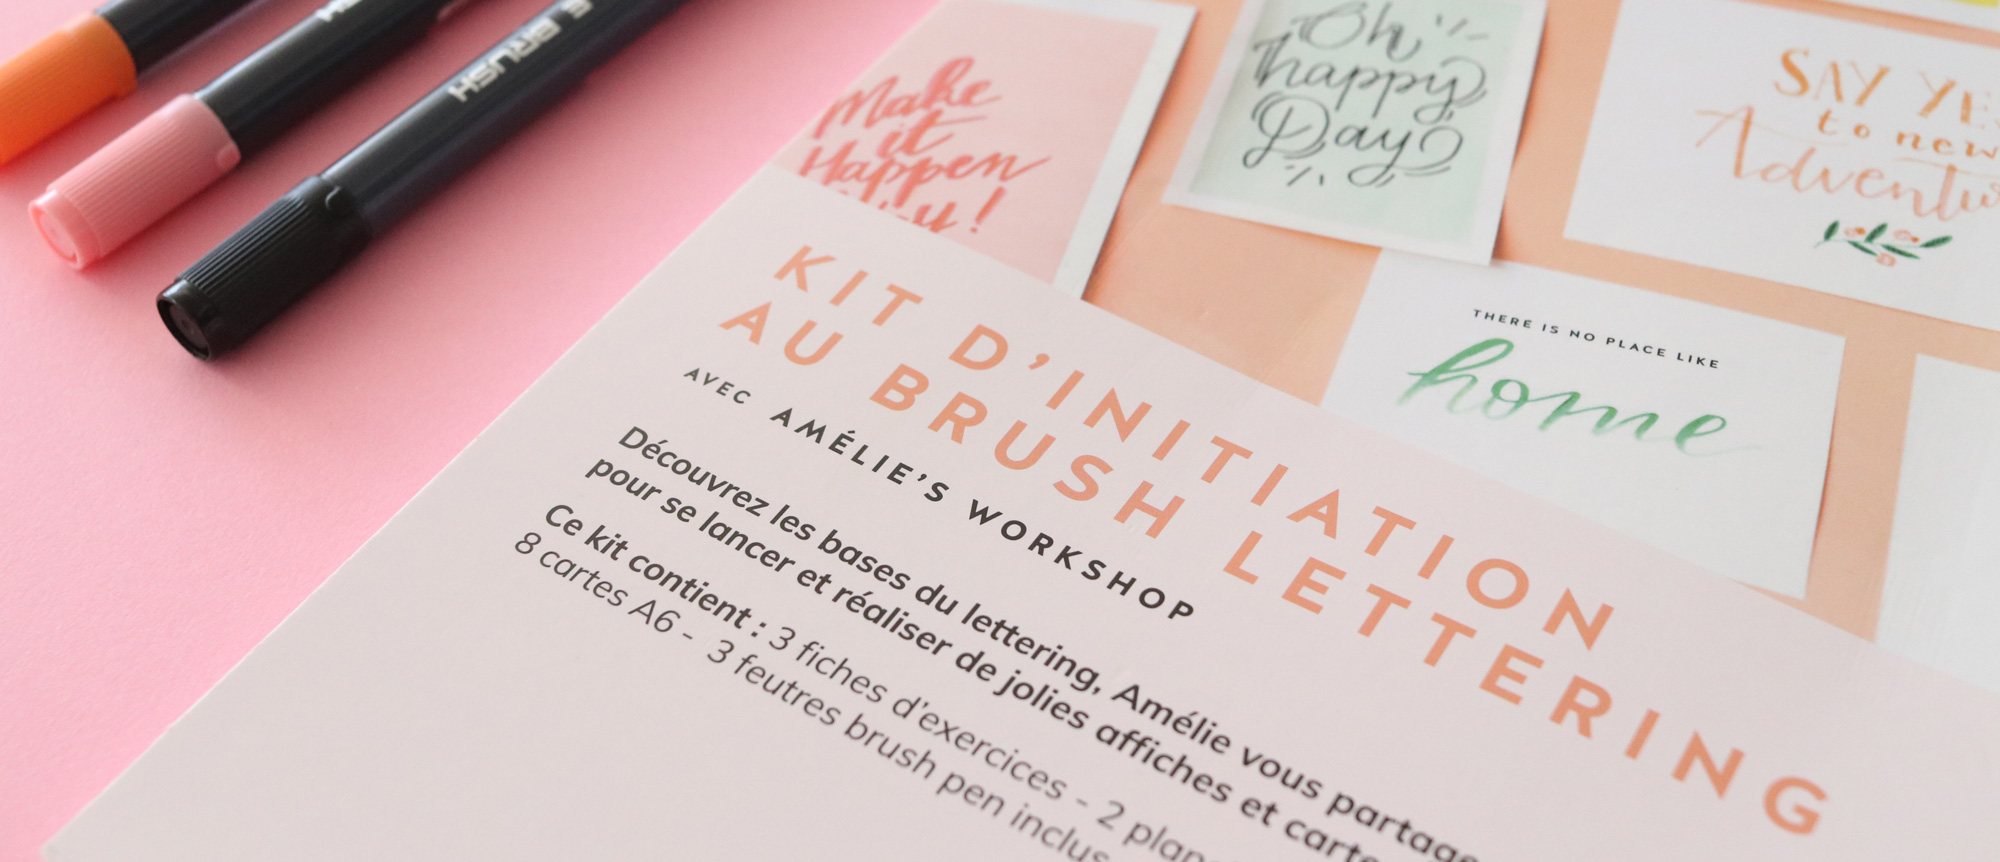 BRUSH
Make
it
Happen
Oh
happy
Day
SAY YE
to new
Adventu
THERE IS NO PLACE LIKE
home
KIT D'INITIATION
AU BRUSH LETTERING
AVEC AMÉLIE'S WORKSHOP
Découvrez les bases du lettering, Amélie vous partage
pour se lancer et réaliser de jolies affiches et carte
Ce kit contient : 3 fiches d'exercices - 2 plan
8 cartes A6 - 3 feutres brush pen inclus